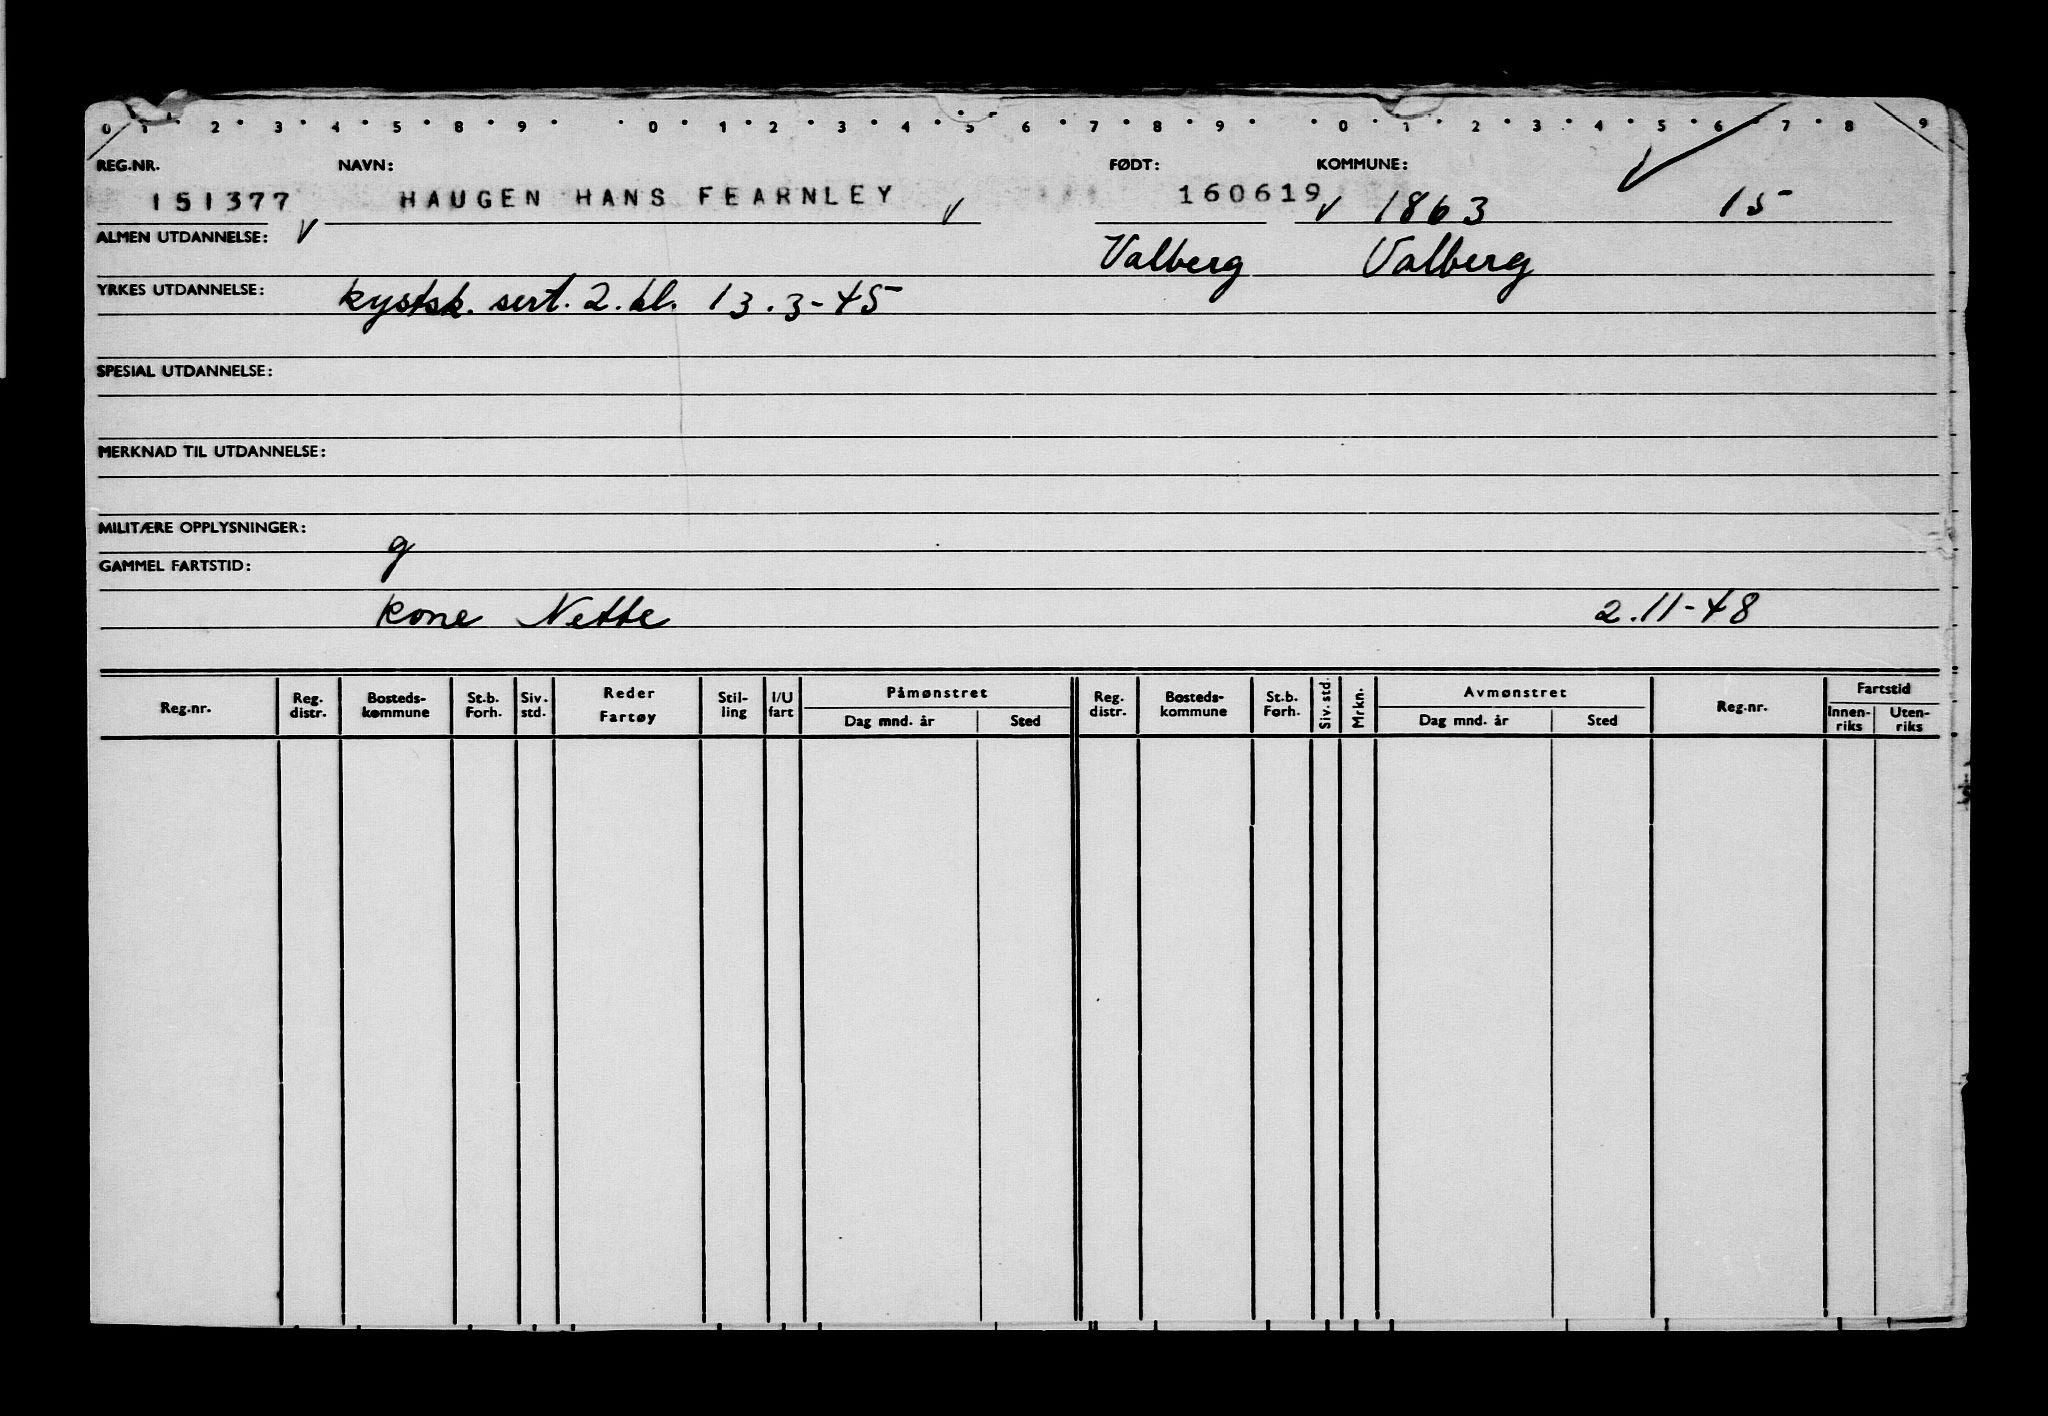 0 1 2 3 4 5 8 9 0 1 2 3 4 5 6 7 8 9 0 1 2 3 4 5 6 7 8 9
REG.NR. NAVN: FØDT: KOMMUNE:
151377 HAUGEN HANS FEARNLEY 160619 1863 15
ALMEN UTDANNELSE: Valberg Valberg
YRKES UTDANNELSE: kystsk. sert. 2. kl. 13.3-45
SPESIAL UTDANNELSE:
MERKNAD TIL UTDANNELSE:
MILITÆRE OPPLYSNINGER:
g
GAMMEL FARTSTID:
kone Nette 2.11-48
Reg.nr. Reg. distr. Bosteds-kommune St.b. Forh. Siv. std. Reder Fartøy Stil-ling I/U fart Påmønstret Dag mnd. år Sted Reg. distr. Bosteds-kommune St.b. Forh. Siv. std. Mrkn. Avmønstret Dag mnd. år Sted Reg.nr. Fartstid Innen-riks Uten-riks